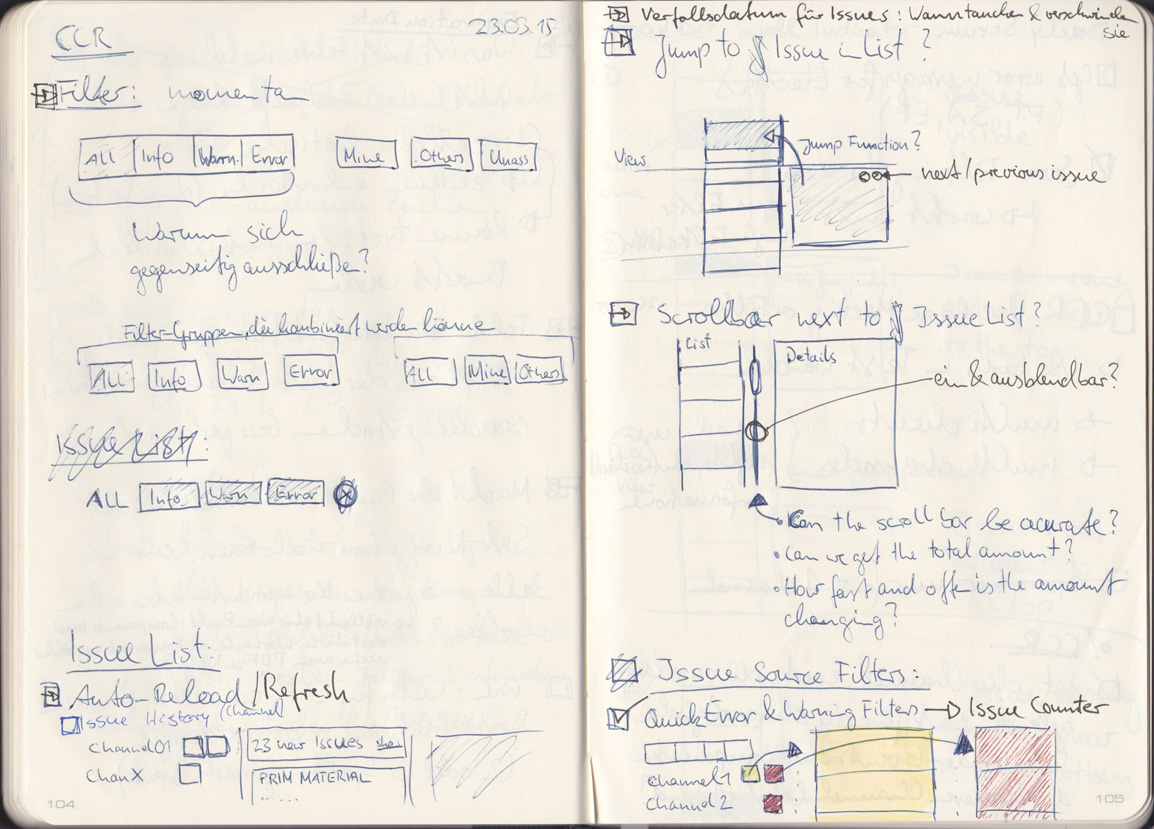 CCR
23.03.15
Filter: momentan
ALL Info Warn. Error
Mine Others Unass
Warum sich
gegenseitig ausschließe?
Filter-Gruppen, die kombiniert werden könne
ALL Info Warn Error
ALL Mine Others
Issue List:
ALL Info Warn Error X
Issue List:
Auto-Reload/Refresh
Issue History (Channel)
Channel01
ChanX
23 new Issues show
PRIM MATERIAL
.....
104
Verfallsdatum für Issues: Wann tauchen & verschwinden
sie
Jump to Issue in List?
View
Jump Function?
next/previous issue
Scrollbar next to Issue List?
List
Details
ein & ausblendbar?
• Can the scrollbar be accurate?
• Can we get the total amount?
• How fast and ofte is the amount
changing?
Issue Source Filters:
Quick Error & Warning Filters → Issue Counter
Channel1
Channel2
105